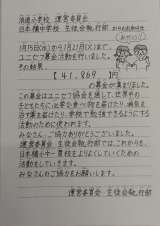 浪速小学校 運営委員会
日本橋中学校 生徒会執行部 からのお知らせ
1月15日(水)から1月21日(火)まで、
ユニセフ募金活動を行いました。
その結果、
【41,869】円
の募金が集まりました。
この募金はユニセフ協会を通して、世界中の
子どもたちに
学校で勉強できるようにする
活動のために使われます。
みなさん、ご協力ありがとうございました。
運営委員会、生徒会執行部では、これからも、
日本橋小中一貫校をよりよくしていくための
活動をしていきます。
みなさんのご協力をお願いします。
運営委員会 生徒会執行部